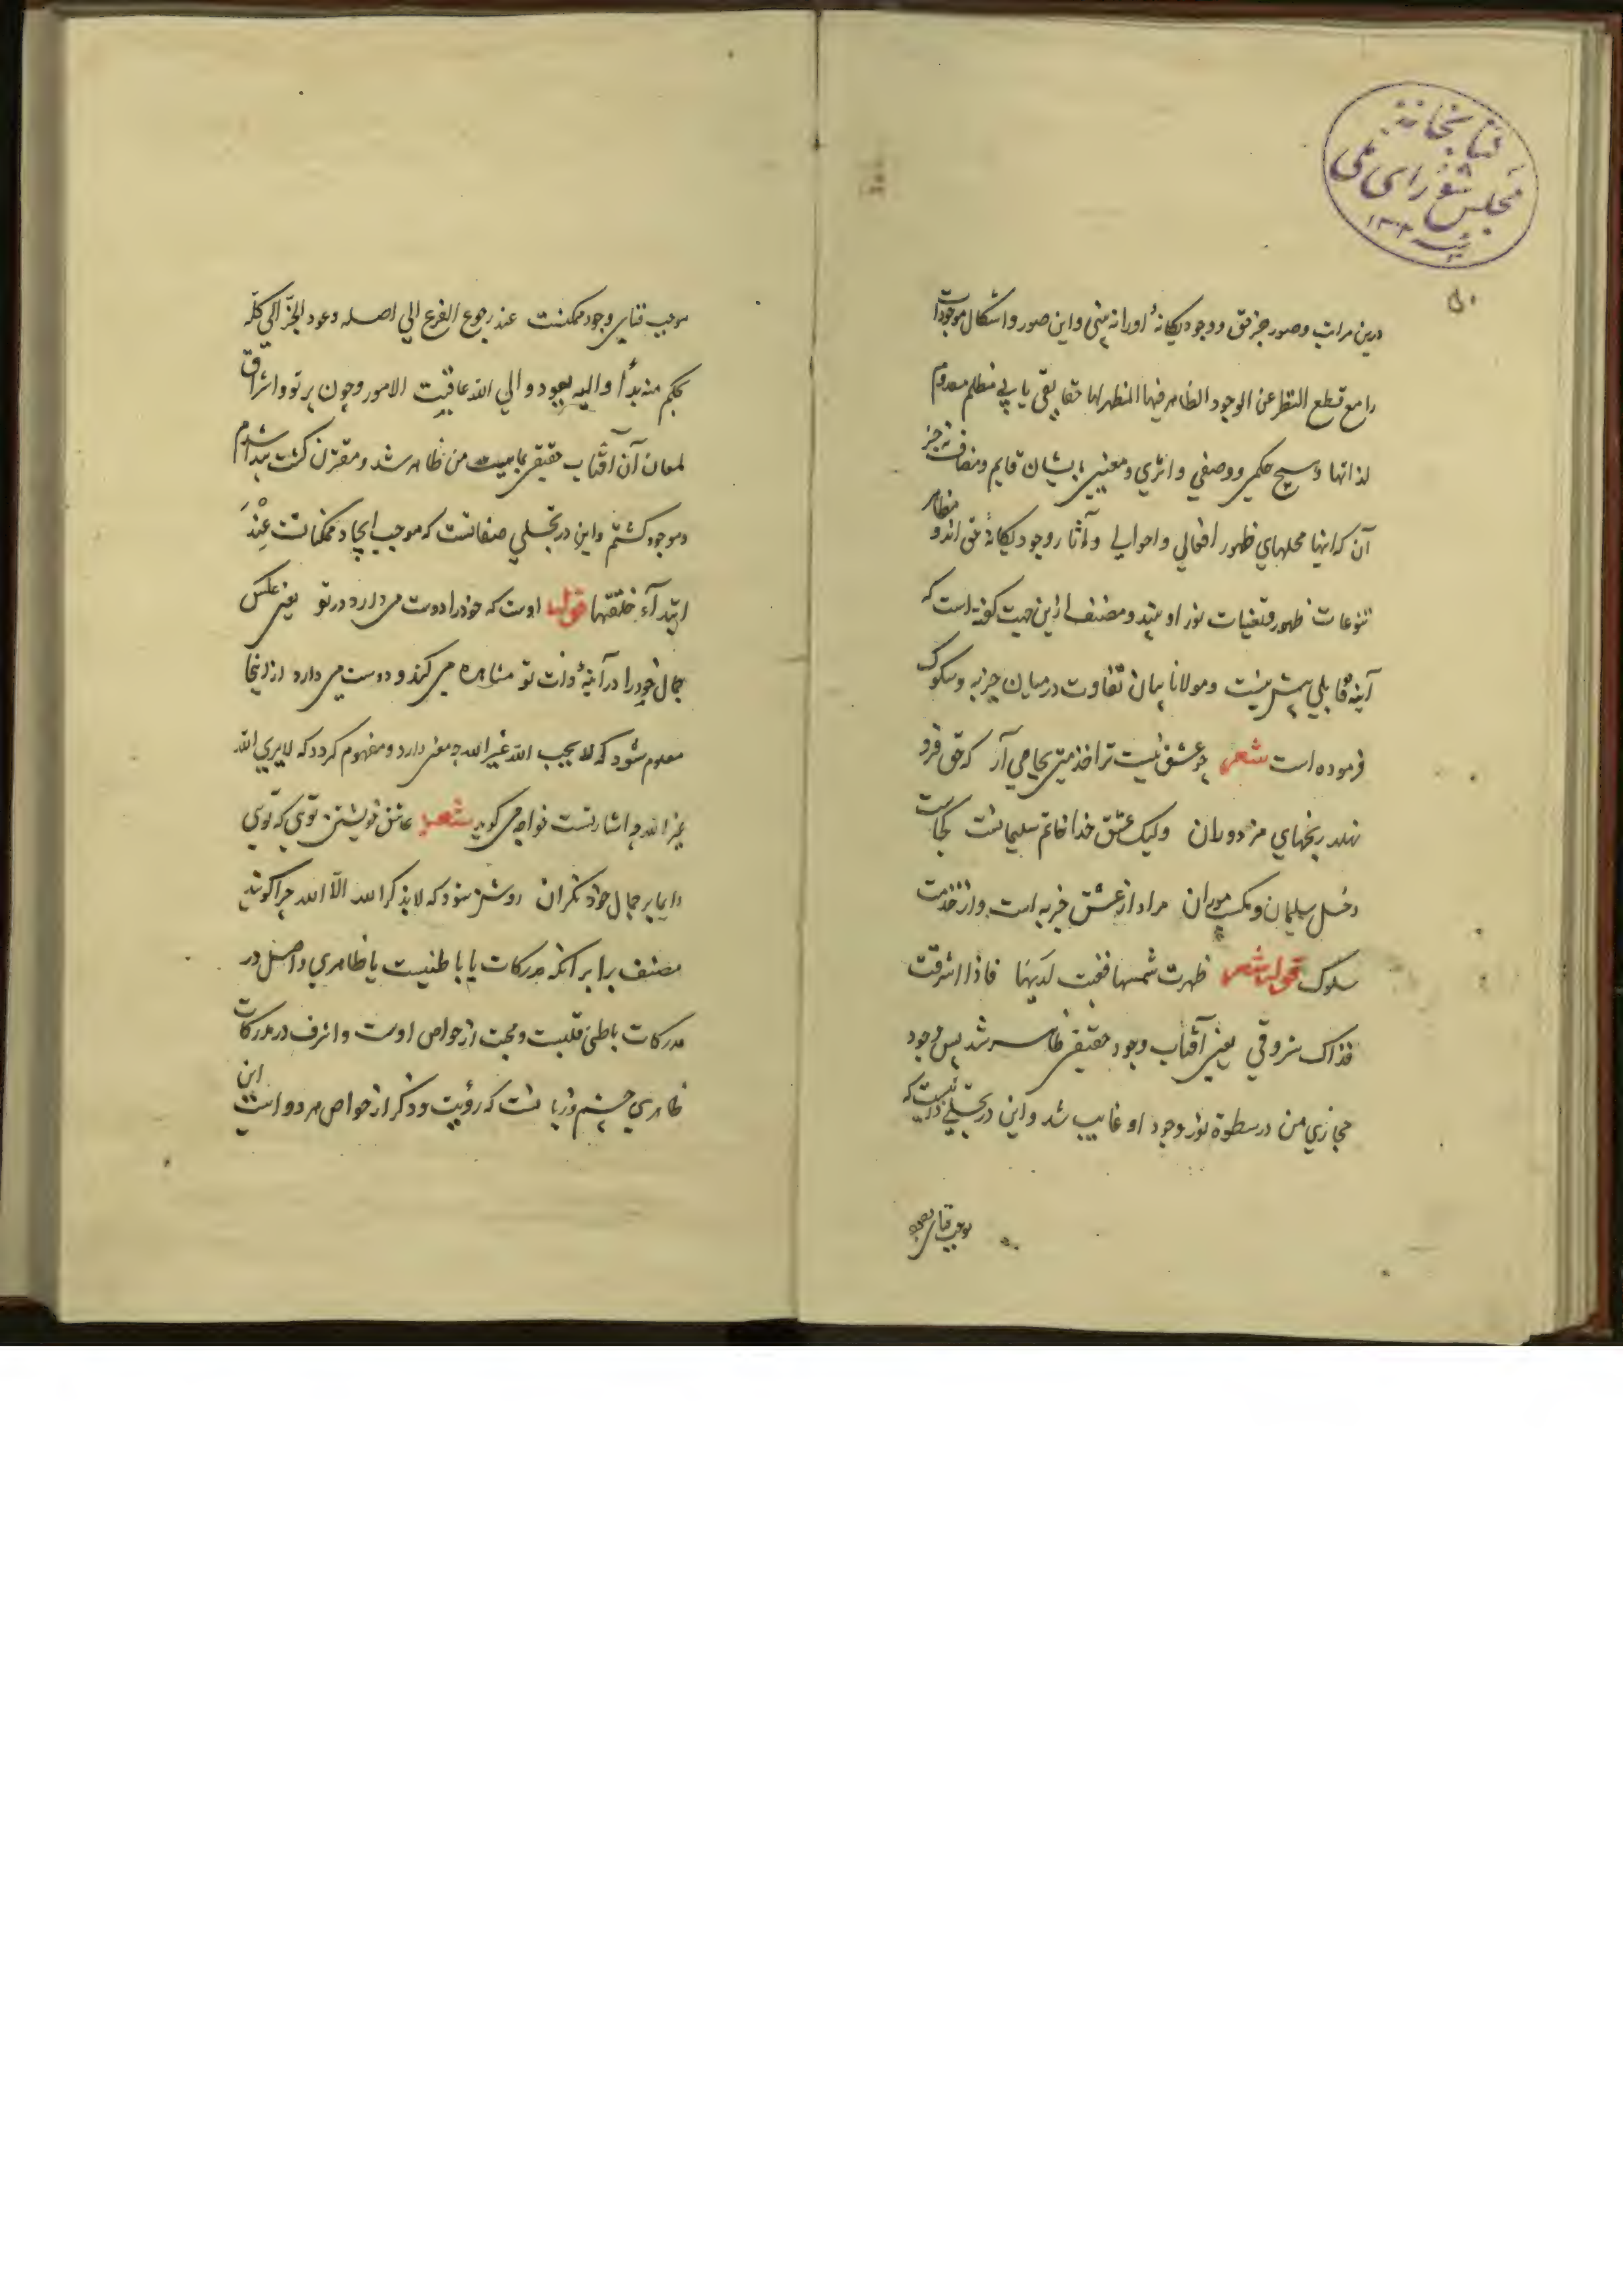 کتابخانه
مجلس شورای ملی
۵۰
درین مرات وصور جز حق ووجود یکانهٔ اورا نه بینی واین صور واشکال موجودات
را مع قطع النظر عن الوجود الظاهر فیها المظهر لها حقایقی یابی مظلم معدوم
لذاتها وهیچ حکمی ووصفی واثری ومعنیی بایشان قایم ومضاف نه جز
آن که اینها محلهای ظهور افعالی واحوالی وآثار وجود یکانهٔ حق اند و مظاهر
تنوعات ظهور مقتضیات نور او بیند ومصنف ازین جهت کفته است که
آینه قابلی بیش نیست ومولانا بیان تفاوت در میان جذبه وسلوک
فرموده است شعر چو عشق نیست ترا خدمتی بجا می آر که حق فرو
نهلد رنجهای مزدوران ولیک عشق خدا خاتم سلیمانت کجاست
دخل سلیمان ومکسب موران مراد از عشق جذبه است واز خدمت
سلوک قوله شعر ظهرت شمسها فغبت لدیها فاذا اشرقت
فذاک شروقی یعنی آفتاب وجود حقیقی ظاهر شد پس وجود
مجازی من در سطوة نور وجود او غایب شد واین در تجلی ذاتیست که
موجب فنای وجود
موجب فنای وجود ممکنست عند رجوع الفرع الی اصله وعود الجزّ الی کلّه
بحکم منه بدأ والیه یعود والی الله عاقبت الامور وچون پرتو واشراق
لمعان آن آفتاب حقیقی بماهیت من ظاهر شد ومقترن کشت پیدا شدم
وموجود کشتم واین در تجلی صفاتست که موجب ایجاد ممکناتست عِنْدَ
ابتدآء خلقتها قوله اوست که خود را دوست می دارد در تو یعنی عکس
جمال خود را در آینهٔ ذات تو مشاهده می کند و دوست می دارد از اینجا
معلوم شود که لا یحب الله غیر الله چه معنی دارد ومفهوم کردد که لا یری الله
غیر الله چه اشارتست خواجه می کوید شعر عاشق خویشتن توی که توی
دایما بر جمال خود نکران روشن شود که لا یذکر الله الّا الله چرا کویند
مصنف برابر آنکه مدرکات یا باطنیست یا ظاهری واصل در
مدرکات باطن قلبست ومحبت از خواص اوست واشرف در مدرکات
ظاهری چشم وزبانست که رؤیت وذکر از خواص هر دو است این